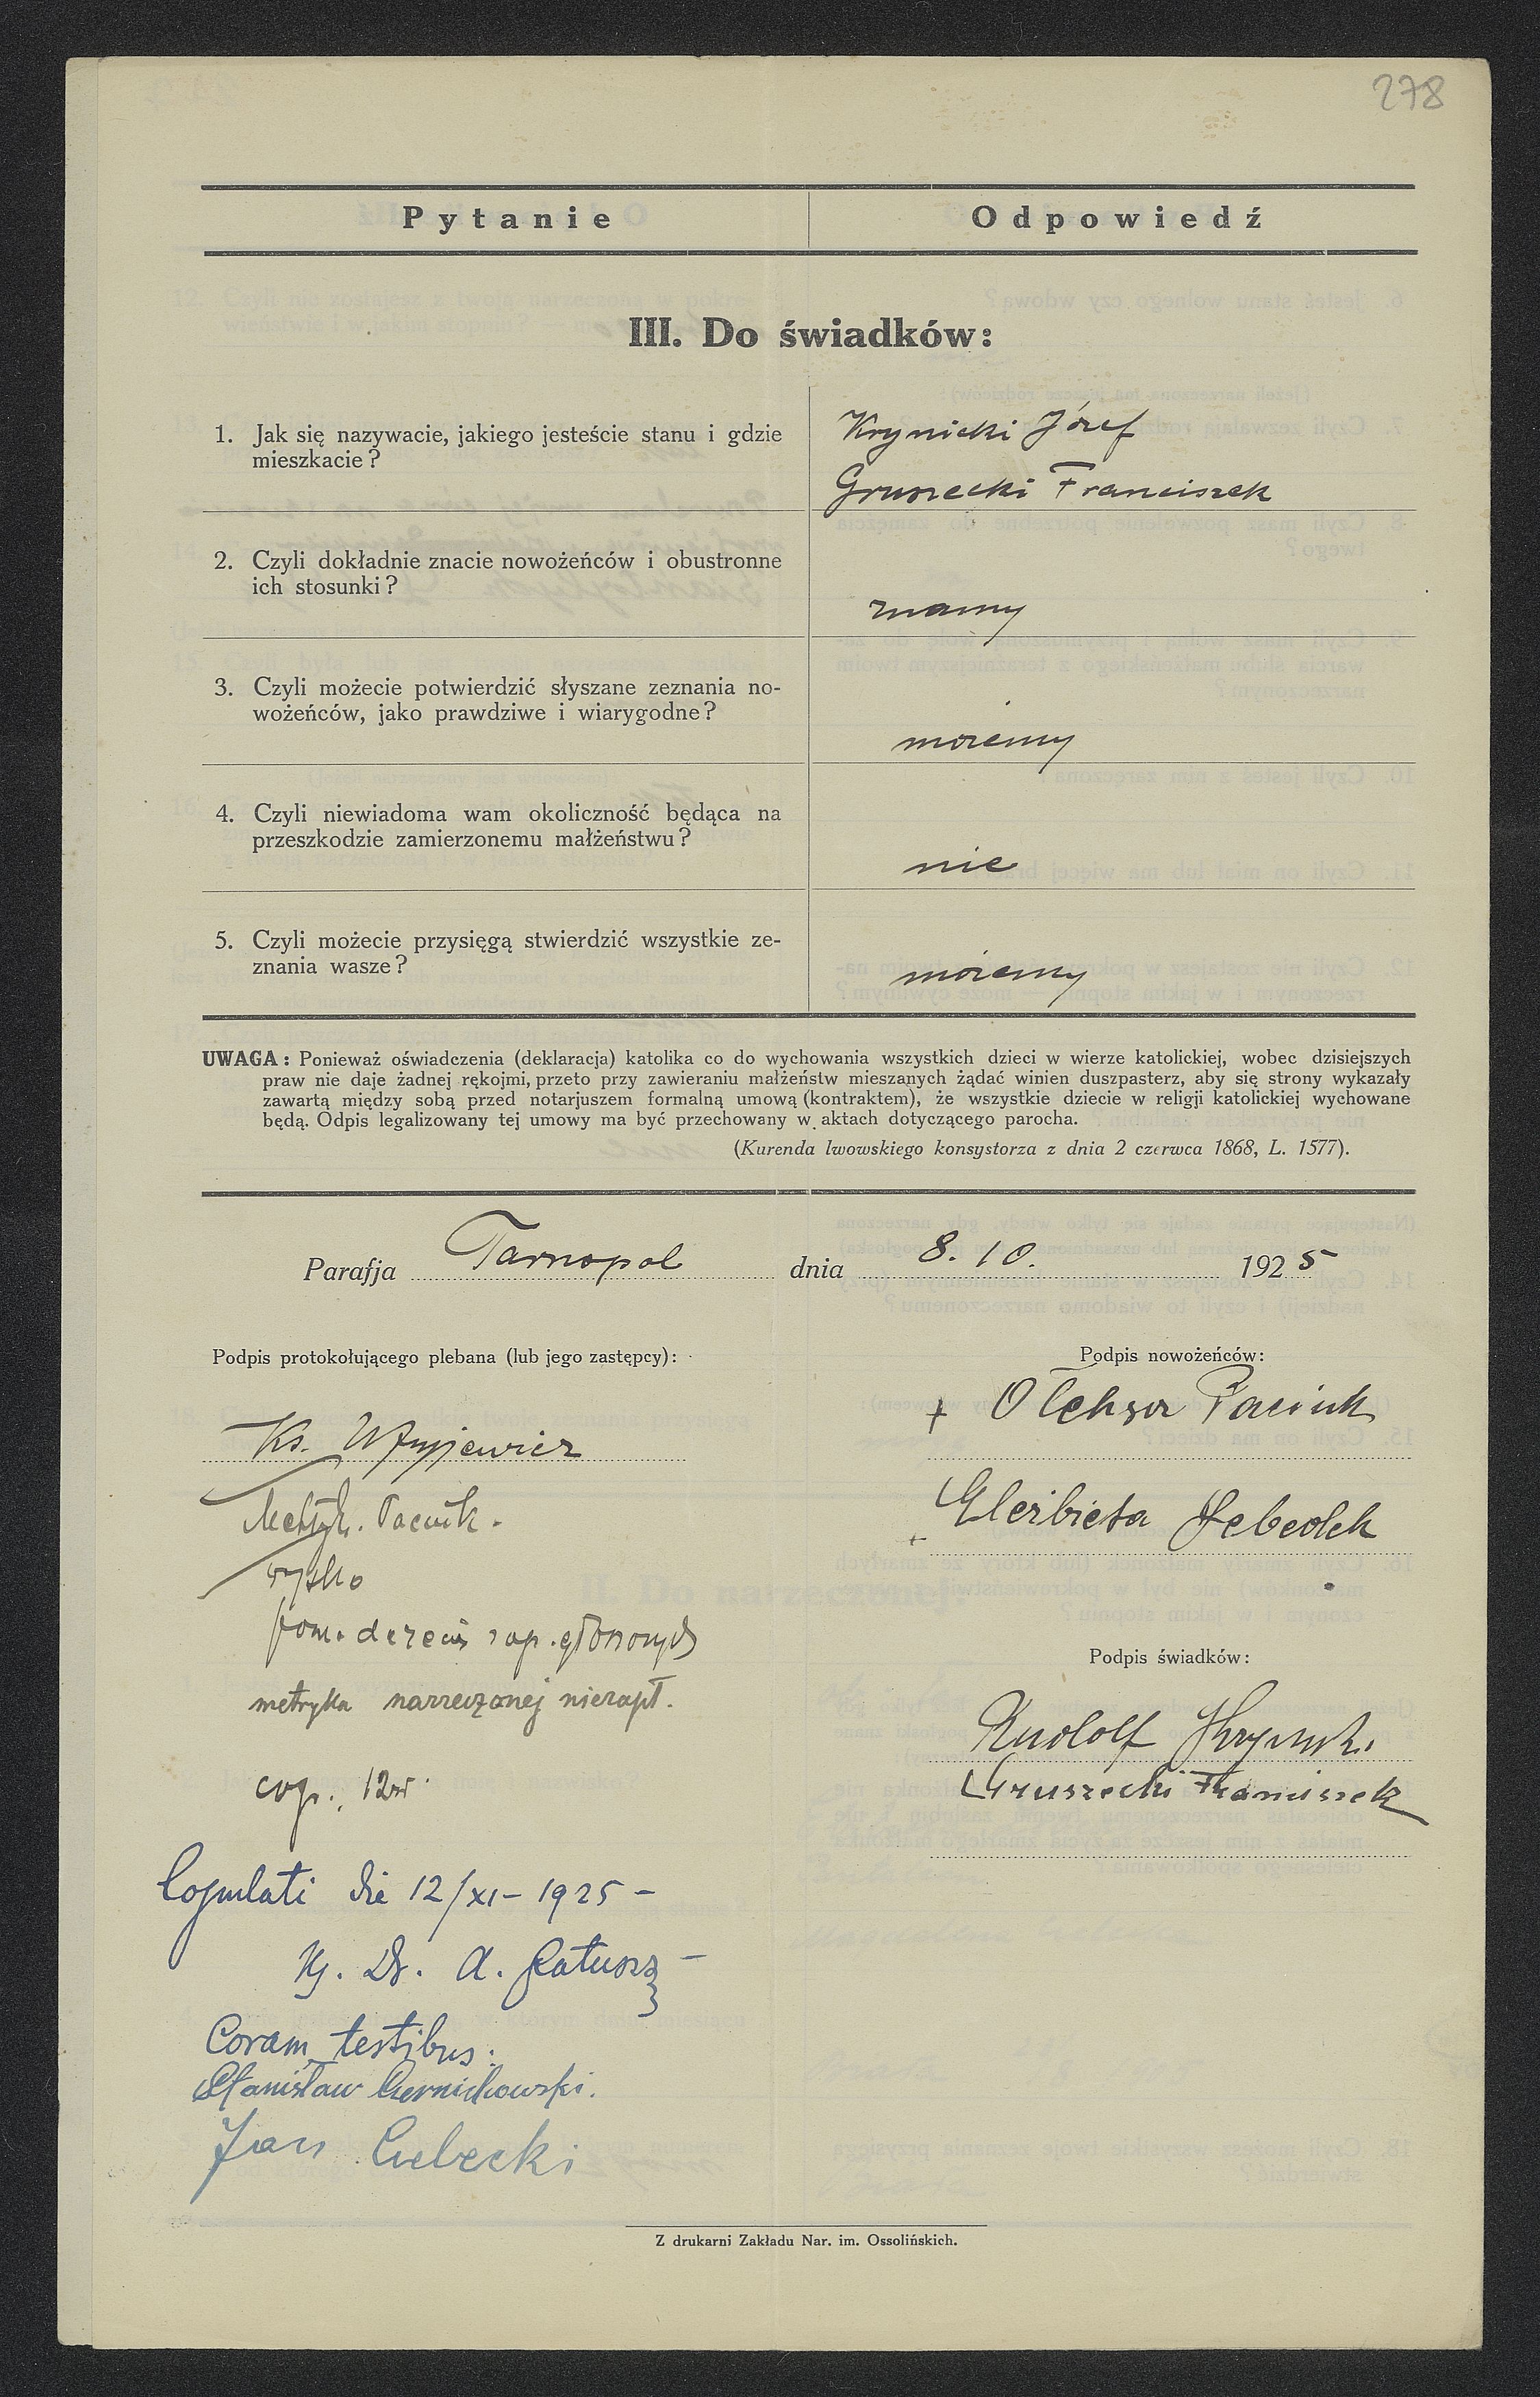 278
Pytanie
Odpowiedź
III. Do świadków:
1. Jak się nazywacie, jakiego jesteście stanu i gdzie
mieszkacie?
Krynicki Józef
Gruszecki Franciszek
2. Czyli dokładnie znacie nowożeńców i obustronne
ich stosunki?
znamy
3. Czyli możecie potwierdzić słyszane zeznania no-
wożeńców, jako prawdziwe i wiarygodne?
możemy
4. Czyli niewiadoma wam okoliczność będąca na
przeszkodzie zamierzonemu małżeństwu?
nie
5. Czyli możecie przysięgą stwierdzić wszystkie ze-
znania wasze?
możemy
UWAGA: Ponieważ oświadczenia (deklaracja) katolika co do wychowania wszystkich dzieci w wierze katolickiej, wobec dzisiejszych
praw nie daje żadnej rękojmi, przeto przy zawieraniu małżeństw mieszanych żądać winien duszpasterz, aby się strony wykazały
zawartą między sobą przed notarjuszem formalną umową (kontraktem), że wszystkie dziecie w religji katolickiej wychowane
będą. Odpis legalizowany tej umowy ma być przechowany w aktach dotyczącego parocha.
(Kurenda lwowskiego konsystorza z dnia 2 czerwca 1868, L. 1577).
Parafja Tarnopol dnia 8. 10. 1925
Podpis protokołującego plebana (lub jego zastępcy):
Podpis nowożeńców:
+ Ołeksa Paciuk
Ks.
+ Elżbieta Lebedek
Metryk. Paciuk.
metryka narzeczonej niezapł.
Podpis świadków:
Rudolf
Gruszecki Franciszek
cop. 12
Copulati die 12/XI - 1925 -
Dr. A.
Coram testibus:
Stanisław
Jan
Z drukarni Zakładu Nar. im. Ossolińskich.